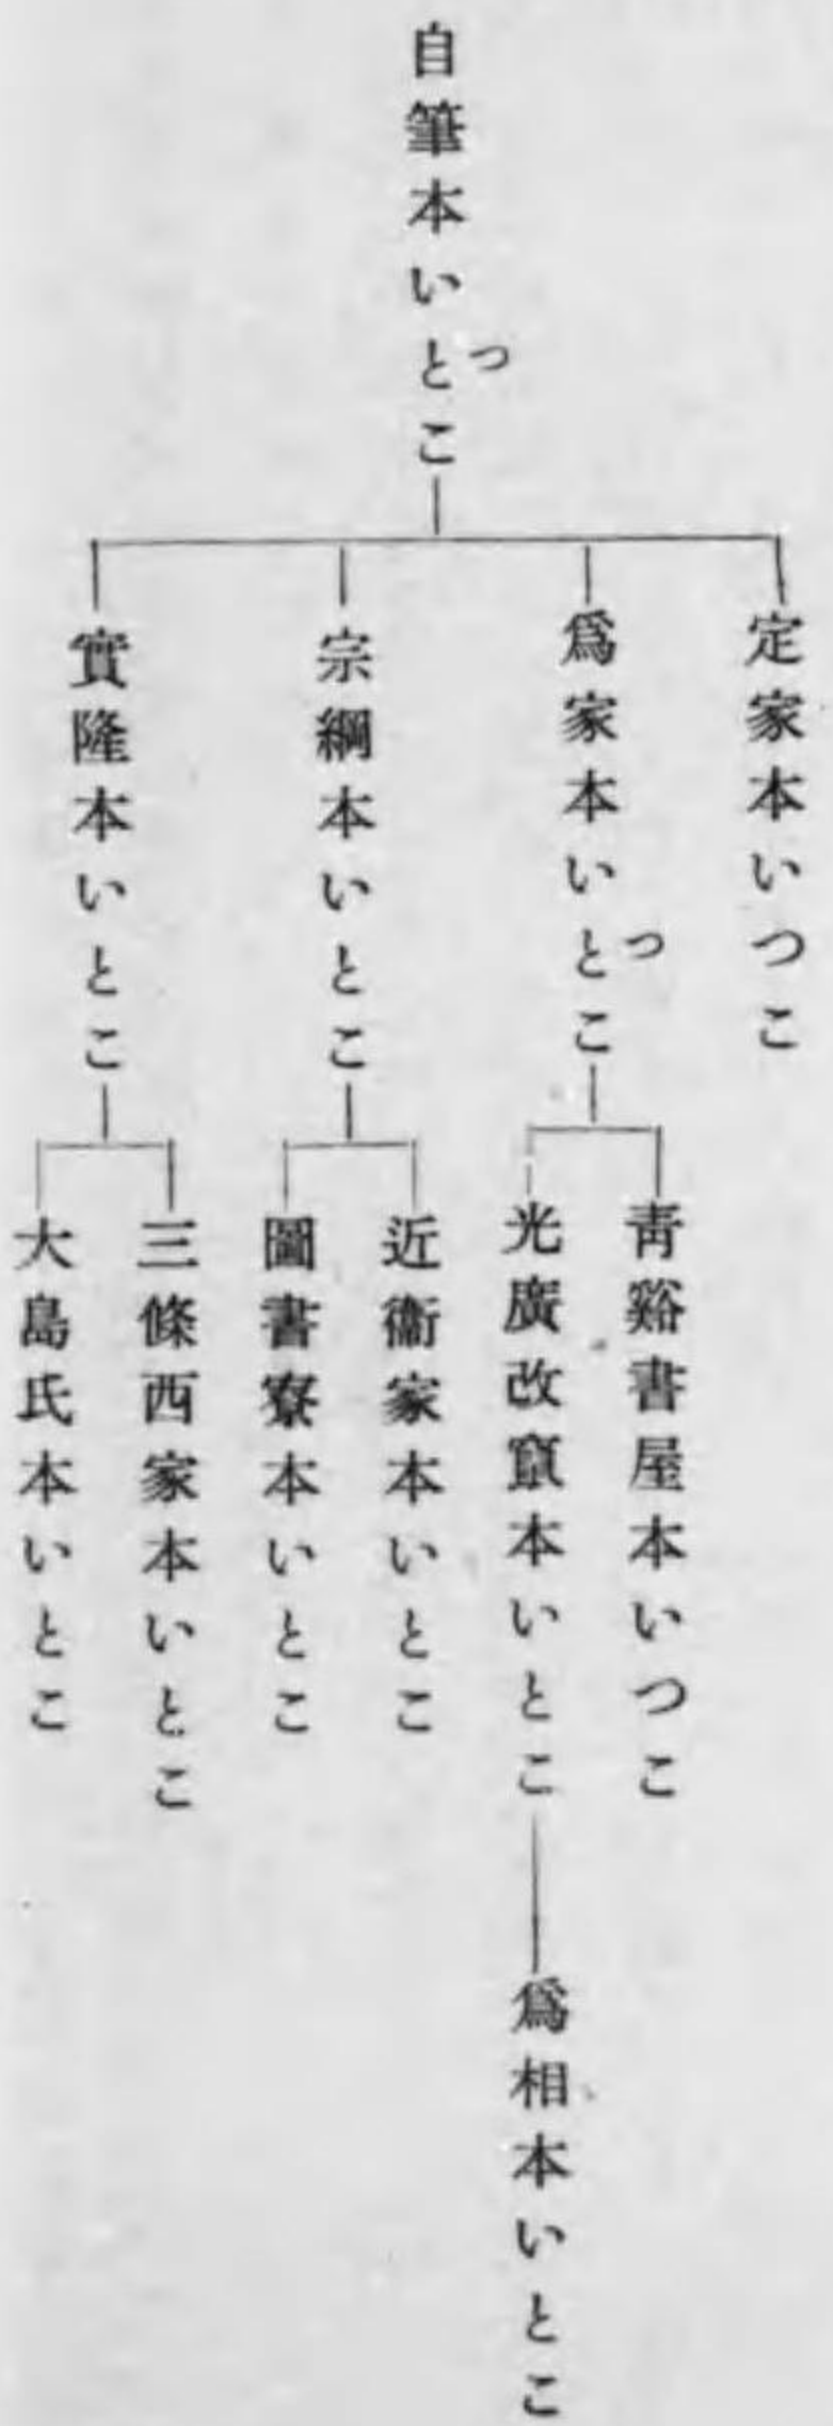 自筆本いとこ
つ
定家本いつこ
爲家本いとこ
つ
靑谿書屋本いつこ
光廣改竄本いとこ
爲相本いとこ
宗綱本いとこ
近衞家本いとこ
圖書寮本いとこ
實隆本いとこ
三條西家本いとこ
大島氏本いとこ